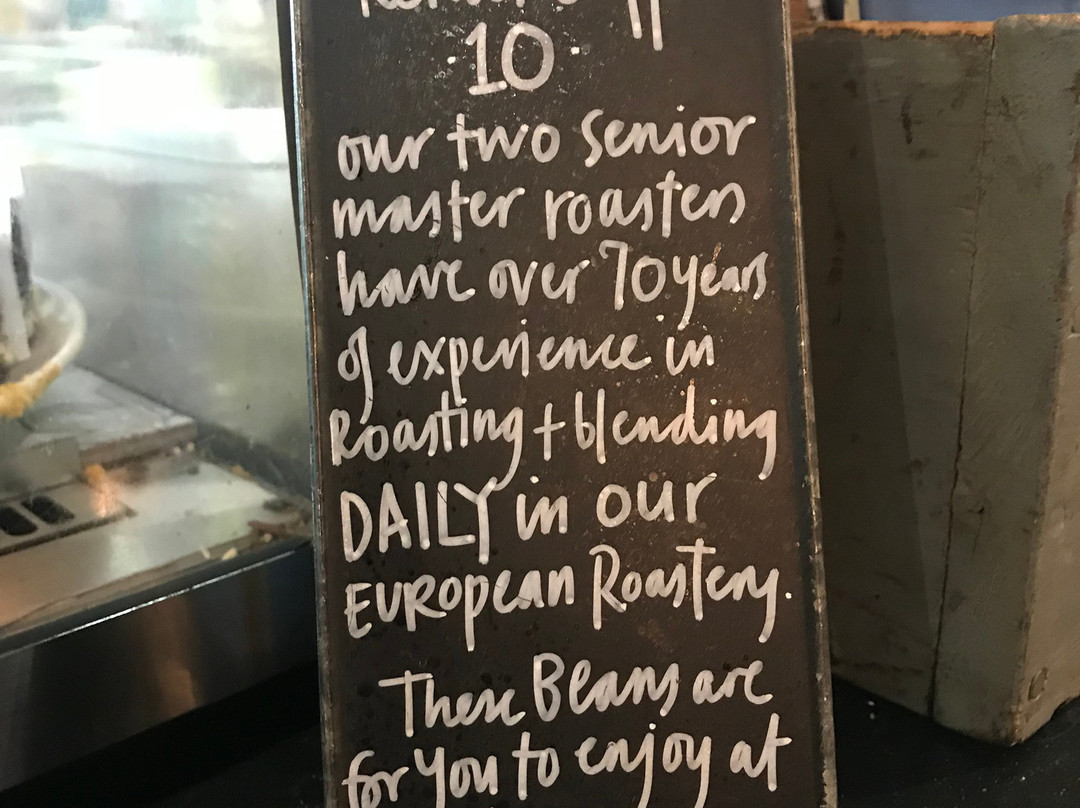 10
our two senior
master roasters
have over 70 years
of experience in
Roasting + blending
DAILY in our
EUROPEAN Roastery.
These Beans are
for you to enjoy at